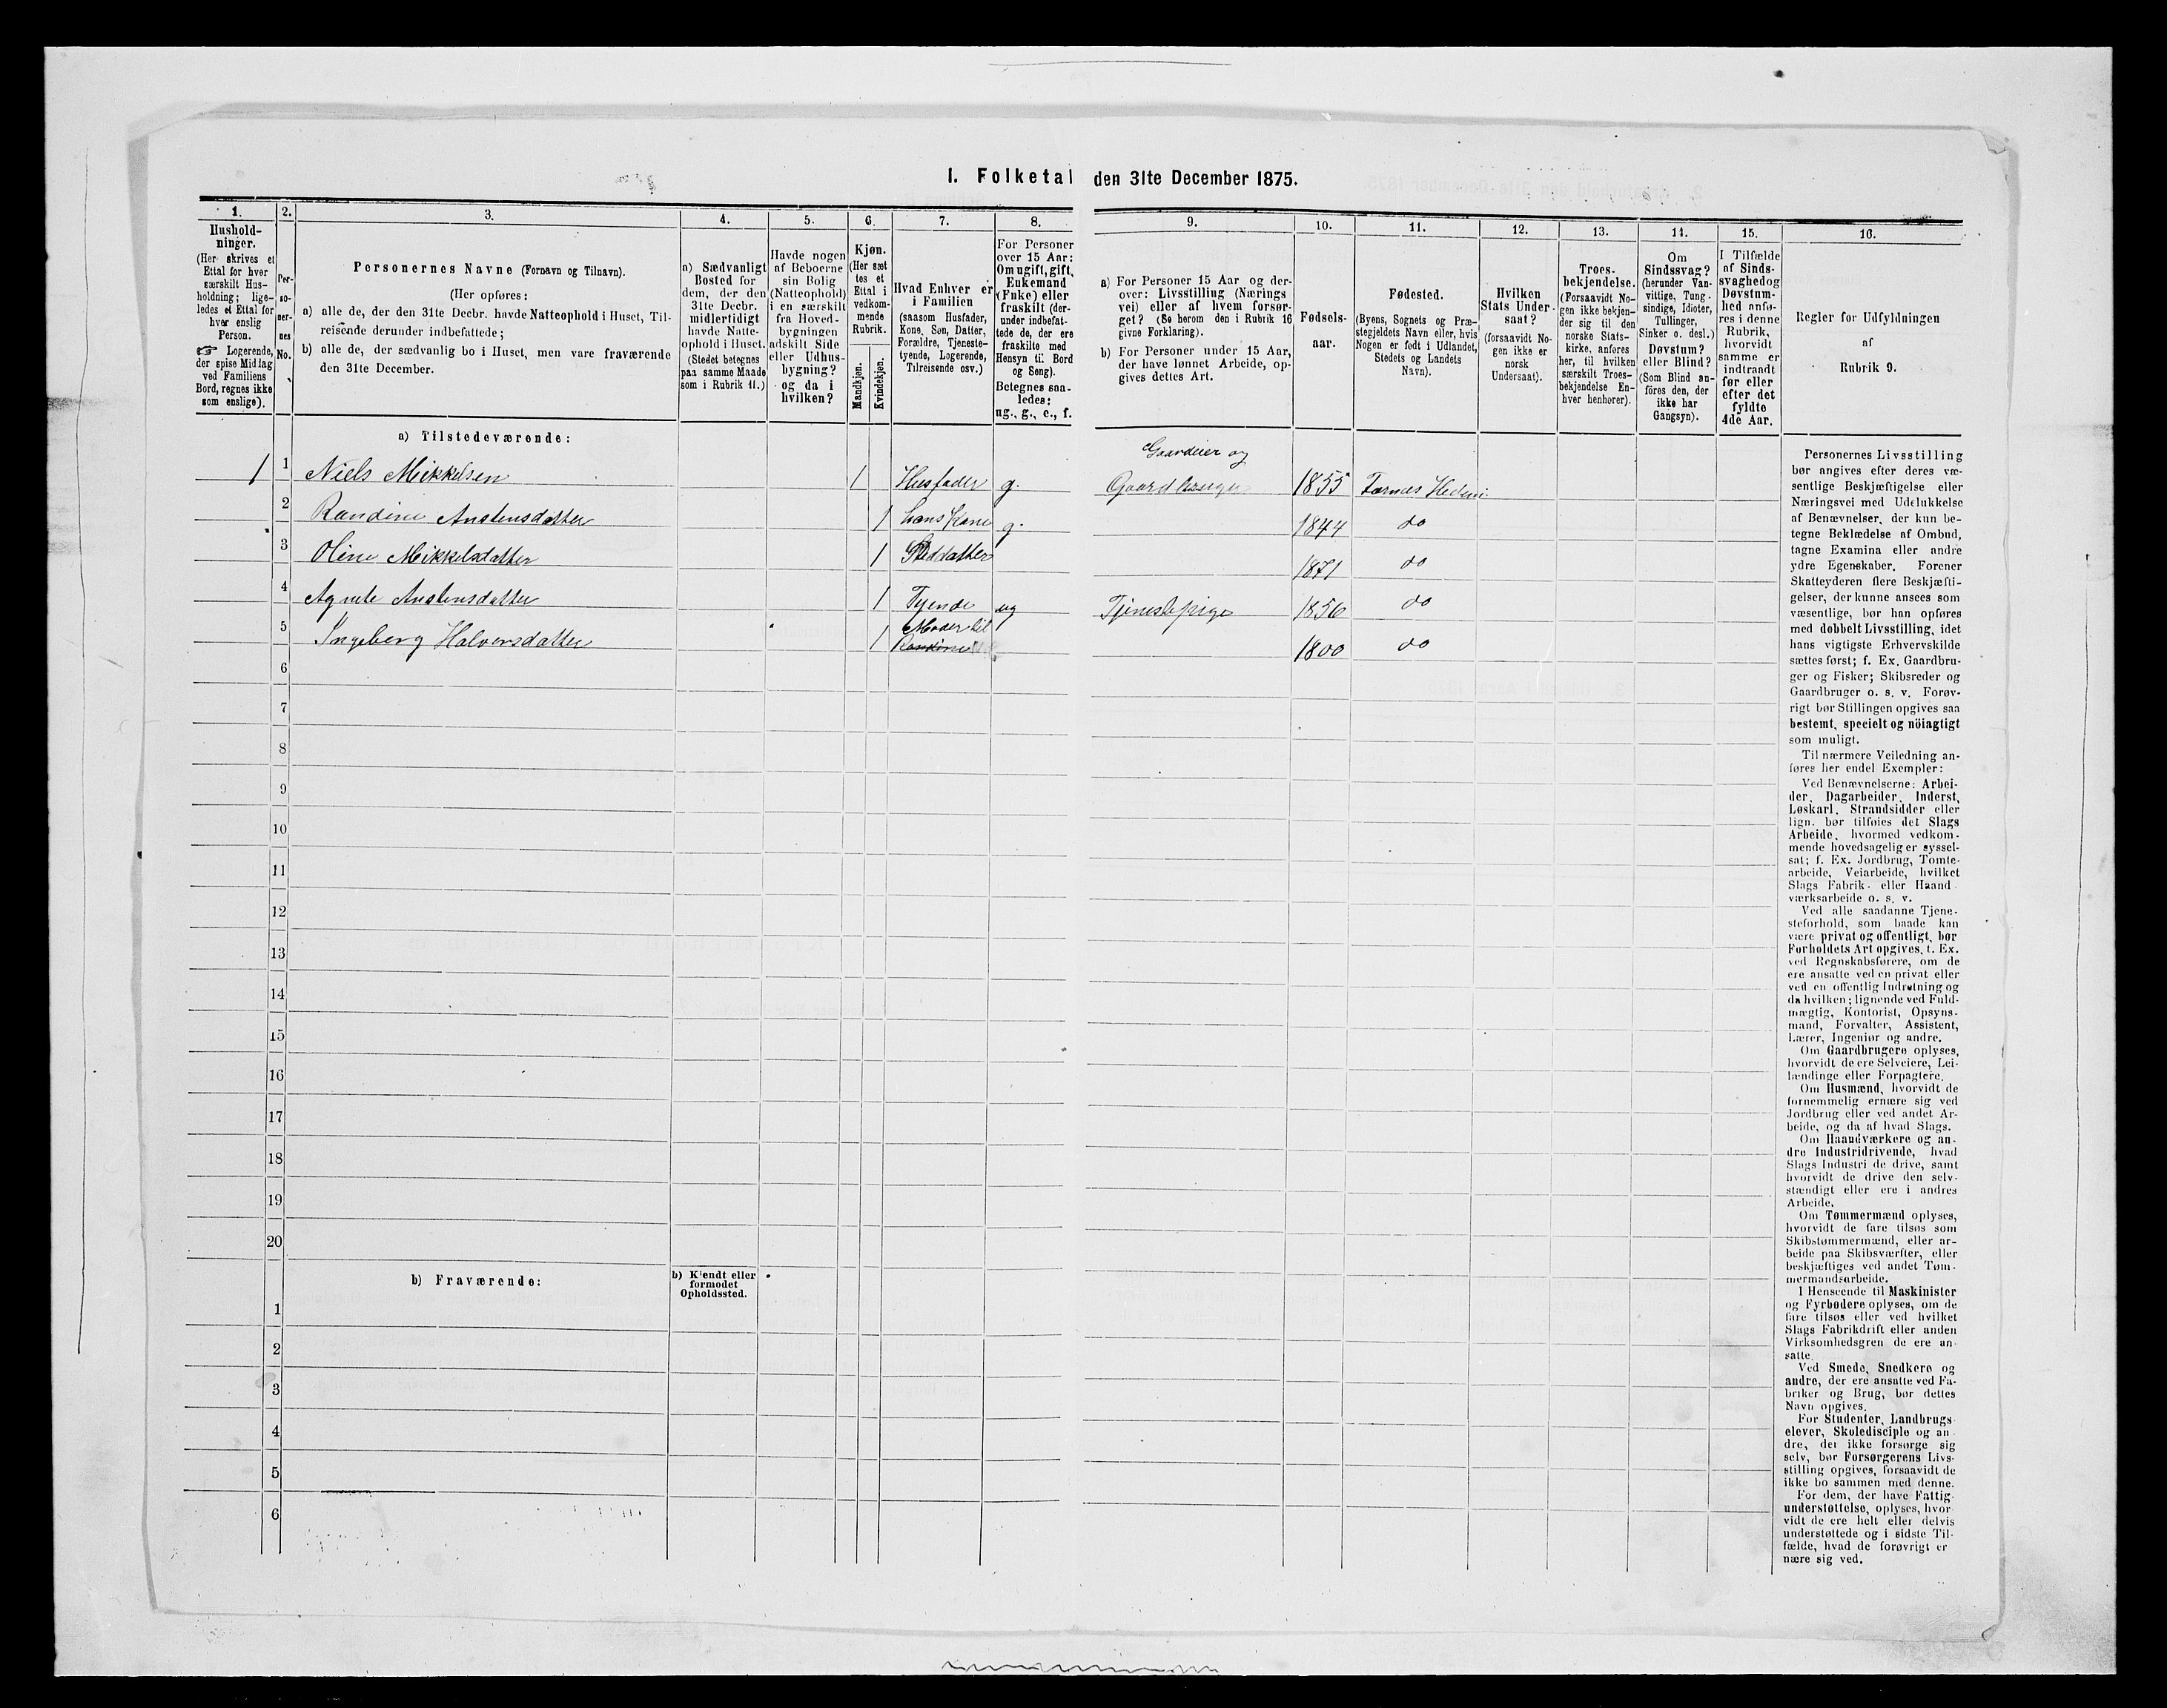 I. Folketal den 31te December 1875.
1. 2. 3. 4. 5. 6. 7. 8. 9. 10. 11. 12. 13. 14. 15. 16.
Hushold-
ninger.
(Her skrives et
Ettal for hver
særskilt Hus-
holdning; lige-
ledes et Ettal for
hver enslig
Person.
☞ Logerende,
der spise Middag
ved Familiens
Bord, regnes ikke
som enslige).
Per-
so-
ner-
nes
No.
Personernes Navne (Fornavn og Tilnavn).
(Her opføres:
a) alle de, der den 31te Decbr. havde Natteophold i Huset, Til-
reisende derunder indbefattede;
b) alle de, der sædvanlig bo i Huset, men vare fraværende
den 31te December.
a) Sædvanligt
Bosted for
dem, der den
31te Decbr.
midlertidigt
havde Natte-
ophold i Huset.
(Stedet betegnes
paa samme Maade
som i Rubrik 11.)
Havde nogen
af Beboerne
sin Bolig
(Natteophold)
i en særskilt
fra Hoved-
bygningen
adskilt Side
eller Udhus-
bygning?
og da i
hvilken?
Kjøn.
(Her sæt
tes et
Ettal i
vedkom-
mende
Rubrik.
Mandkjøn.
Kvindekjøn.
Hvad Enhver er
i Familien
(saasom Husfader,
Kone, Søn, Datter,
Forældre, Tjeneste-
tyende, Logerende,
Tilreisende osv.)
For Personer
over 15 Aar:
Om ugift, gift,
Enkemand
(Enke) eller
fraskilt (der-
under indbefat-
tede de, der ere
fraskilte med
Hensyn til Bord
og Seng).
Betegnes saa-
ledes:
ug., g., e., f.
a) For Personer 15 Aar og der-
over: Livsstilling (Nærings
vei) eller af hvem forsør-
get? (Se herom den i Rubrik 16
givne Forklaring).
b) For Personer under 15 Aar,
der have lønnet Arbeide, op-
gives dettes Art.
Fødsels-
aar.
Fødested.
(Byens, Sognets og Præ-
stegjeldets Navn eller, hvis
Nogen er født i Udlandet,
Stedets og Landets
Navn).
Hvilken
Stats Under-
saat?
(forsaavidt No-
gen ikke er
norsk
Undersaat).
Troes-
bekjendelse.
(Forsaavidt No-
gen ikke bekjen-
der sig til den
norske Stats-
kirke, anføres
her, til hvilken
særskilt Troes-
bekjendelse En-
hver henhører).
Om
Sindssvag?
(herunder Van-
vittige, Tung-
sindige, Idioter,
Tullinger,
Sinker o. desl.)
Døvstum?
eller Blind?
(Som Blind an-
føres den, der
ikke har
Gangsyn).
I Tilfælde
af Sinds-
svaghed og
Døvstum-
hed anfø-
res i denne
Rubrik,
hvorvidt
samme er
indtraadt
før eller
efter det
fyldte
4de Aar.
Regler for Udfyldningen
af
Rubrik 9.
a) Tilstedeværende:
Gaardeier og
1 1 Niels Mikkelsen 1 Husfader g. Gaardbruger 1855
2 Randine Anstensdatter 1 hans Kone g. 1844 do
3 Oline Mikkelsdatter 1 Steddatter 1871 do
4 Agnete Anstensdatter 1 Tyende ug Tjenestepige 1856 do
Moder til
5 Ingeberg Halvorsdatter 1 Randine 1800 do
6
7
8
9
10
11
12
13
14
15
16
17
18
19
20
b) Fraværende:
b) Kjendt eller
formodet
Opholdssted.
1
2
3
4
5
6
Personernes Livsstilling
bør angives efter deres væ-
sentlige Beskjæftigelse eller
Næringsvei med Udelukkelse
af Benævnelser, der kun be-
tegne Beklædelse af Ombud,
tagne Examina eller andre
ydre Egenskaber. Forener
Skatteyderen flere Beskjæfti-
gelser, der kunne ansees som
væsentlige, bør han opføres
med dobbelt Livsstilling, idet
hans vigtigste Erhvervskilde
sættes først; f. Ex. Gaardbru-
ger og Fisker; Skibsreder og
Gaardbruger o. s. v. Forøv-
rigt bør Stillingen opgives saa
bestemt, specielt og nöiagtigt
som muligt.
Til nærmere Veiledning an-
føres her endel Exempler:
Ved Benævnelserne: Arbei-
der, Dagarbeider, Inderst,
Løskarl, Strandsidder eller
lign. bør tilføies det Slags
Arbeide, hvormed vedkom-
mende hovedsagelig er syssel-
sat; f. Ex. Jordbrug, Tomte-
arbeide, Veiarbeide, hvilket
Slags Fabrik- eller Haand-
værksarbeide o. s. v.
Ved alle saadanne Tjene-
steforhold, som baade kan
være privat og offentligt, bør
Forholdets Art opgives, f. Ex.
ved Regnskabsførere, om de
ere ansatte ved en privat eller
ved en offentlig Indretning og
da hvilken; lignende ved Fuld-
mægtig, Kontorist, Opsyns-
mand, Forvalter, Assistent,
Lærer, Ingeniør og andre.
Om Gaardbrugere oplyses,
hvorvidt de ere Selveiere, Lei-
lændinge eller Forpagtere.
Om Husmænd, hvorvidt de
fornemmelig ernære sig ved
Jordbrug eller ved andet Ar-
beide, og da af hvad Slags.
Om Haandværkere og an-
dre Industridrivende, hvad
Slags Industri de drive, samt
hvorvidt de drive den selv-
stændigt eller ere i andres
Arbeide.
Om Tømmermænd oplyses,
hvorvidt de fare tilsøs som
Skibstømmermænd, eller ar-
beide paa Skibsværfter, eller
beskjæftiges ved andet Tøm-
mermandsarbeide.
I Henseende til Maskinister
og Fyrbødere oplyses, om de
fare tilsøs eller ved hvilket
Slags Fabrikdrift eller anden
Virksomhedsgren de ere an-
satte.
Ved Smede, Snedkere og
andre, der ere ansatte ved Fa-
briker og Brug, bør dettes
Navn opgives.
For Studenter, Landbrugs-
elever, Skoledisciple og an-
dre, der ikke forsørge sig
selv, bør Forsørgerens Livs-
stilling opgives, forsaavidt de
ikke bo sammen med denne.
For dem, der have Fattig-
understøttelse, oplyses, hvor-
vidt de ere helt eller delvis
understøttede og i sidste Til-
fælde, hvad de forøvrigt er-
nære sig ved.